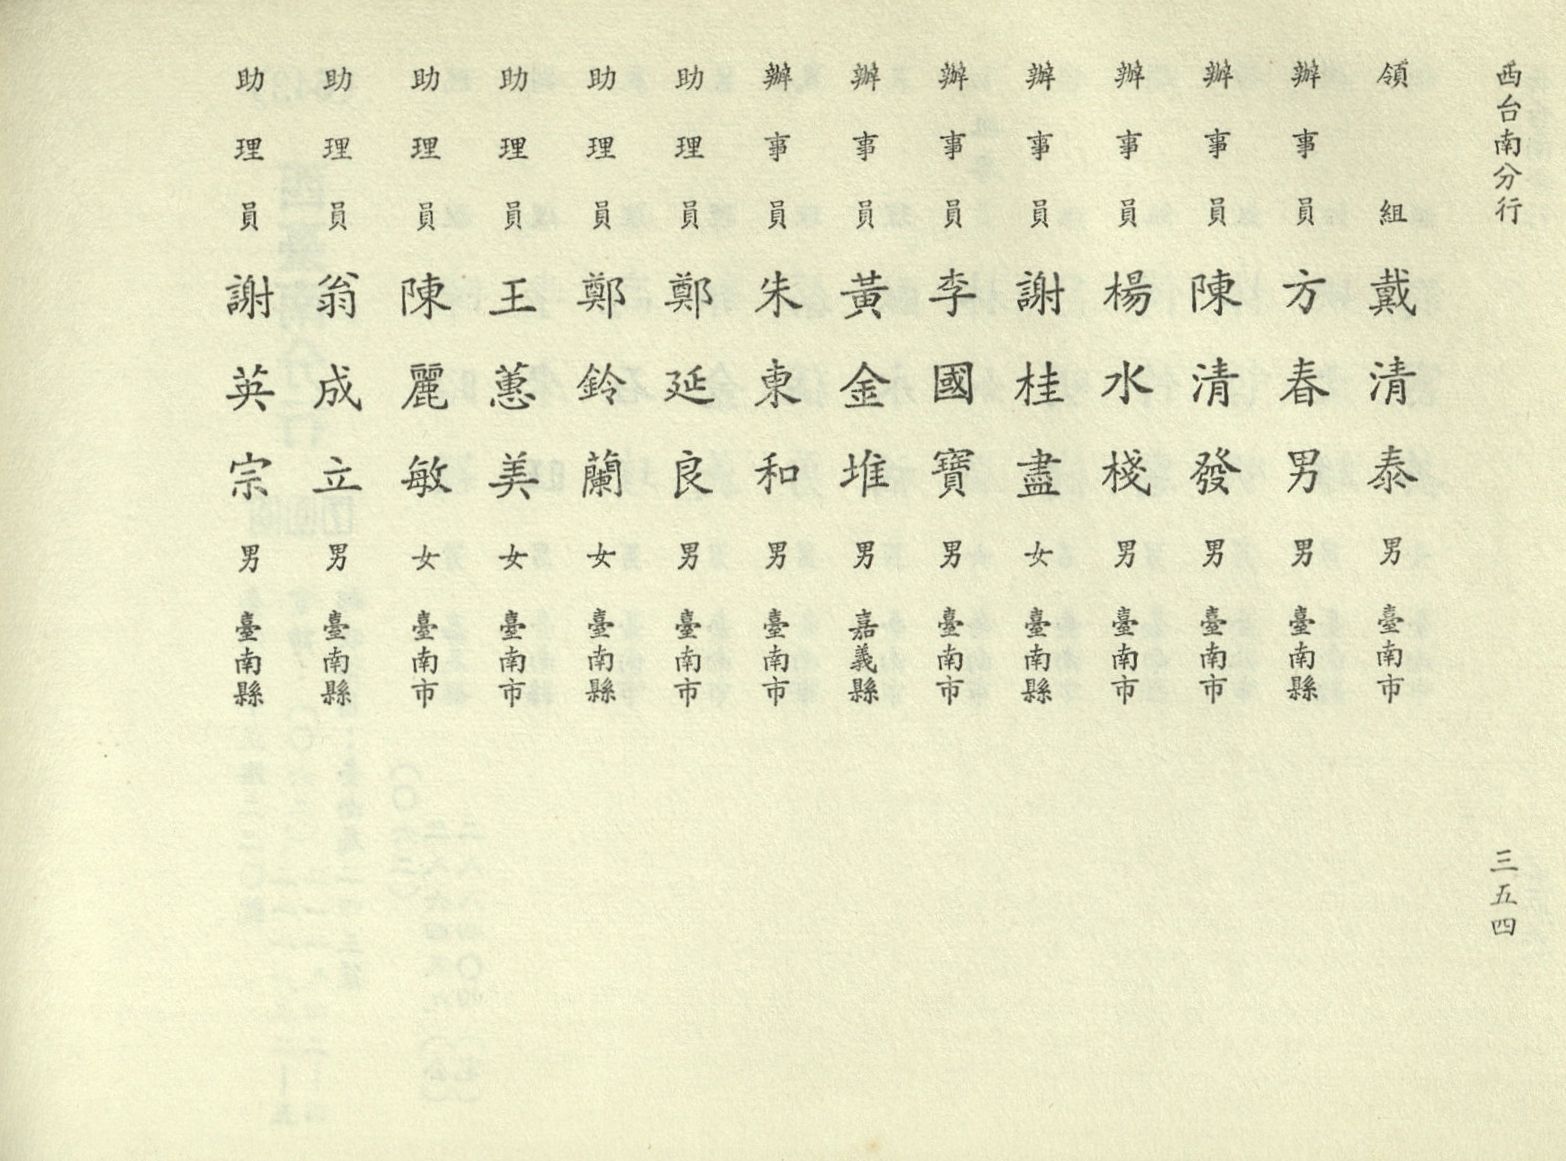 西台南分行
三五四
領組 戴清泰 男 臺南市
辦事員 方春男 男 臺南縣
辦事員 陳清發 男 臺南市
辦事員 楊水棧 男 臺南市
辦事員 謝桂盡 女 臺南縣
辦事員 李國寶 男 臺南市
辦事員 黃金堆 男 嘉義縣
辦事員 朱東和 男 臺南市
助理員 鄭延良 男 臺南市
助理員 鄭鈴蘭 女 臺南縣
助理員 王蕙美 女 臺南市
助理員 陳麗敏 女 臺南市
助理員 翁成立 男 臺南縣
助理員 謝英宗 男 臺南縣